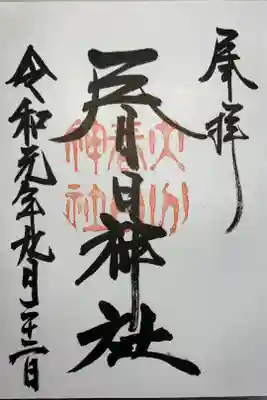 奉拝
春日神社
令和元年九月二十二日